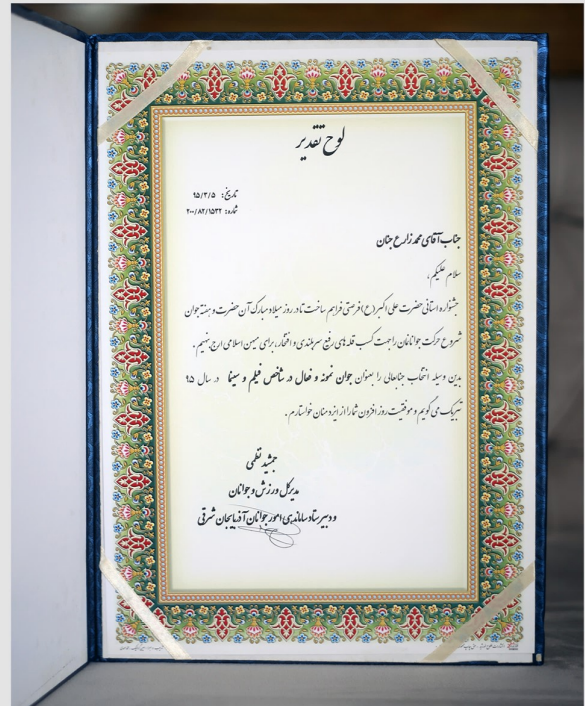 لوح تقدیر
تاریخ: ۹۵/۳/۵
شماره: ۲۰۰/۸۲/۱۵۳۲
جناب آقای محمد زارع جنان
سلام علیکم،
جشنواره استانی حضرت علی اکبر (ع) فرصتی فراهم ساخت تا در روز میلاد مبارک آن حضرت و هفته جوان
شروع حرکت جوانانمان را جهت کسب قله های رفیع سربلندی و افتخار، برای میهن اسلامی ارج نهیم.
بدین وسیله انتخاب جنابعالی را بعنوان جوان نمونه و فعال در شاخص فیلم و سینما در سال ۹۵
تبریک می گویم و موفقیت روز افزون شما را از ایزد منان خواستارم.
جمشید نظمی
مدیرکل ورزش و جوانان
و دبیر ستاد ساماندهی امور جوانان آذربایجان شرقی